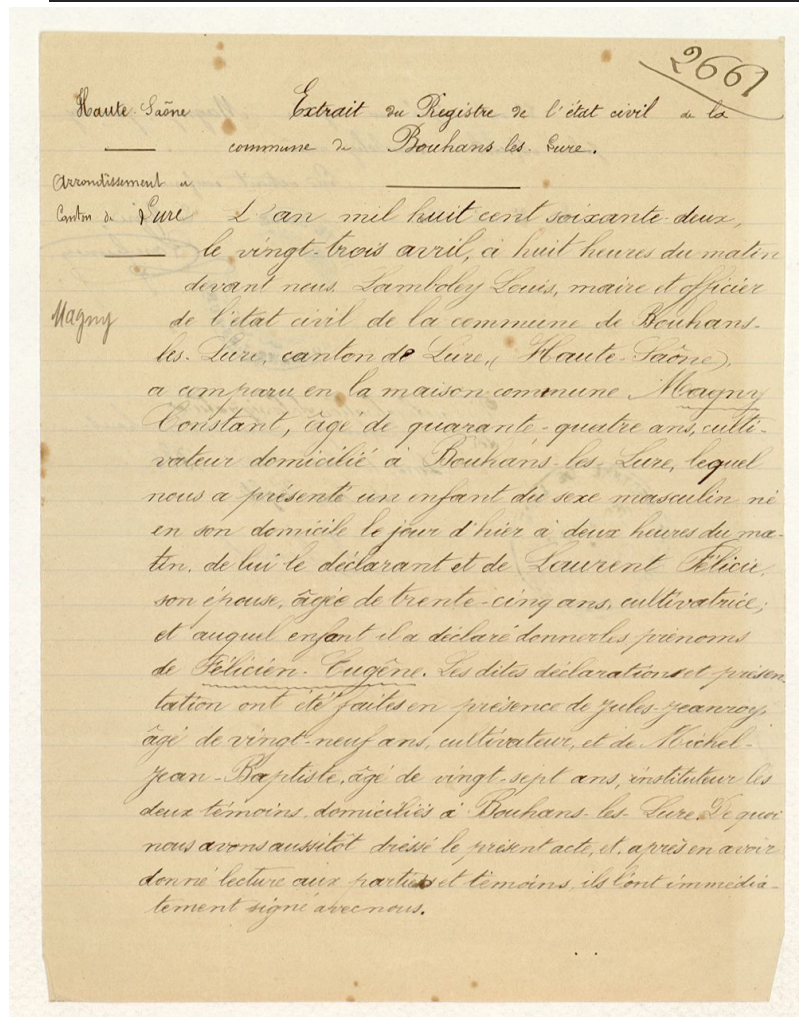 2661
Haute-Saône
Extrait du Registre de l'état civil de la
commune de Bouhans les Lure.
Arrondissement et
Canton de Lure
L'an mil huit cent soixante-deux,
le vingt-trois avril, à huit heures du matin
devant nous, Lamboley Louis, maire et officier
Magny
de l'état civil de la commune de Bouhans-
les-Lure, canton de Lure, (Haute-Saône),
a comparu en la maison commune Magny
Constant, âgé de quarante-quatre ans, culti-
vateur domicilié à Bouhans-les-Lure, lequel
nous a présenté un enfant du sexe masculin né
en son domicile le jour d'hier à deux heures du ma-
tin, de lui le déclarant et de Laurent Félicie,
son épouse, âgée de trente-cinq ans, cultivatrice;
et auquel enfant il a déclaré donner les prénoms
de Félicien-Eugène. Les dites déclarations et présen-
tation ont été faites en présence de Jules-Jeanroy,
âgé de vingt-neuf ans, cultivateur, et de Michel-
Jean-Baptiste, âgé de vingt-sept ans, instituteur les
deux témoins domiciliés à Bouhans-les-Lure. De quoi
nous avons aussitôt dressé le présent acte, et, après en avoir
donné lecture aux parties et témoins, ils l'ont immédia-
tement signé avec nous.